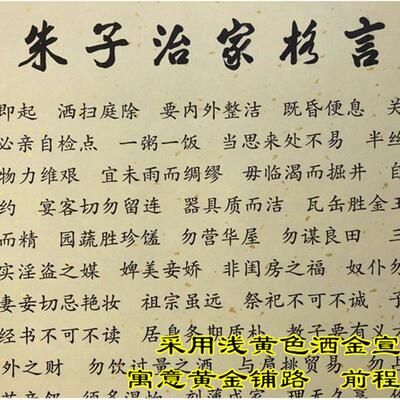 朱子治家格言
即起 洒扫庭除 要内外整洁 既昏便息 关
必亲自检点 一粥一饭 当思来处不易 半丝
物力维艰 宜未雨而绸缪 毋临渴而掘井 自
约 宴客切勿留连 器具质而洁 瓦缶胜金玉
而精 园蔬胜珍馐 勿营华屋 勿谋良田 三
实淫盗之媒 婢美妾娇 非闺房之福 奴仆勿
妻妾切忌艳妆 祖宗虽远 祭祀不可不诚 子
经书不可不读 居身务期质朴 教子要有义方
外之财 勿饮过量之酒 与肩挑贸易 勿占
采用浅黄色洒金宣
寓意黄金铺路 前程